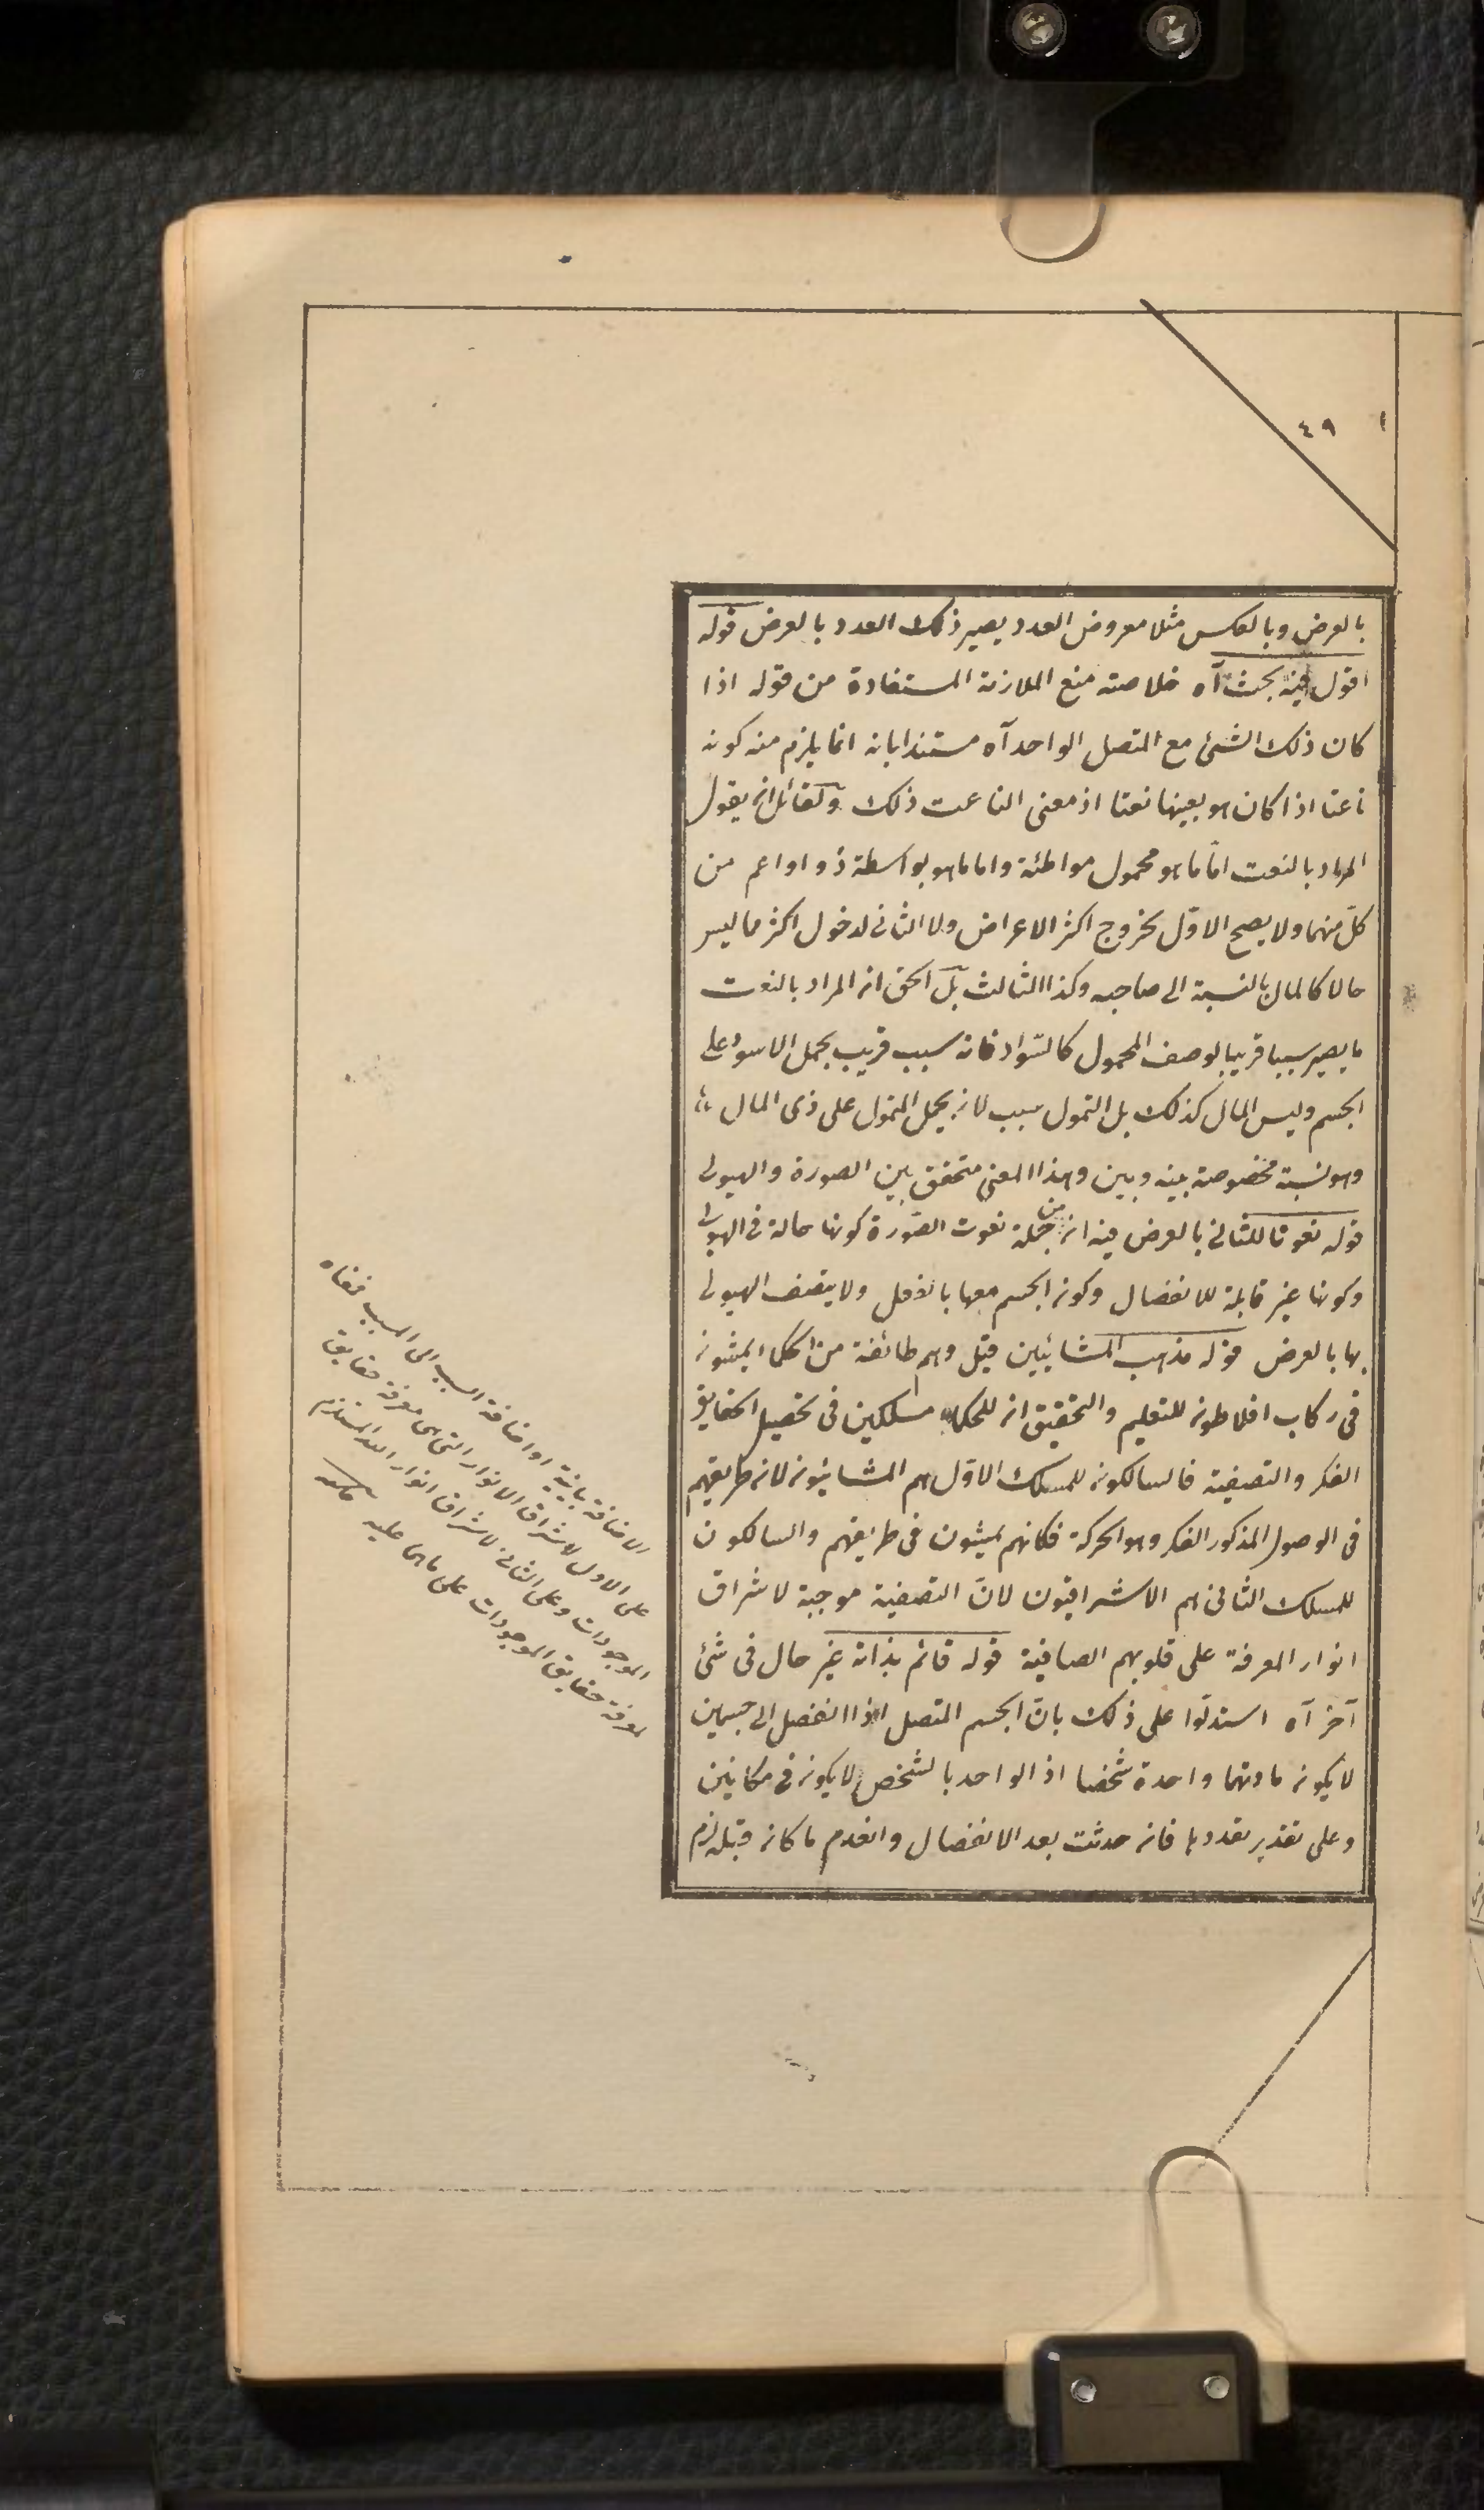 ٤٩
بالعرض وبالعكس مثلا معروض العدد يصير ذلك العدد بالعرض قوله
اقول فيه بحث آه خلاصته منع الملازمة المستفادة من قوله اذا
كان ذلك الشئ مع المتصل الواحد آه مستندا بانه انما يلزم منه كونه
ناعتا اذا كان هو بعينها نعتا اذ معنى الناعت ذلك ولقائل ان يقول
المراد بالنعت امّا ما هو محمول مواطئة واما ما هو بواسطة ذو او اعم من
كلّ منهما ولا يصح الاوّل لخروج اكثر الاعراض ولا الثانى لدخول اكثر ما ليس
حالا كالمال بالنسبة الى صاحبه وكذا الثالث بل الحق ان المراد بالنعت
ما يصير سببا قريبا لوصف المحمول كالسّواد فانه سبب قريب لحمل الاسود على
الجسم وليس المال كذلك بل التمول سبب لان يحمل المتمول على ذى المال
وهو نسبة مخصوصة بينه وبين وهذا المعنى متحقق بين الصورة والهيولى
قوله نعوتا للثانى بالعرض فيه ان من جملة نعوت الصّورة كونها حالة فى الهيولى
وكونها غير قابلة للانفصال وكون الجسم معها بالفعل ولا يتصف الهيولى
بها بالعرض قوله مذهب المشائيين قيل وهم طائفة من الحكماء يمشون
فى ركاب افلاطون للتعليم والتحقيق ان للحكماء مسلكين فى تحصيل الحقايق
الفكر والتصفية فالسالكون للمسلك الاوّل هم المشائيون لان طريقهم
فى الوصول المذكور الفكر وهو الحركة فكانهم يمشون فى طريقهم والسالكون
للمسلك الثانى هم الاشراقيون لانّ التصفية موجبة لاشراق
انوار المعرفة على قلوبهم الصافية قوله قائم بذاته غير حال فى شئ
آخر آه استدلّوا على ذلك بانّ الجسم المتصل اذا انفصل الى جسمين
لا يكون مادتهما واحدة شخصا اذ الواحد بالشخص لا يكون فى مكانين
وعلى تقدير تعددها فان حدثت بعد الانفصال وانعدم ما كان قبله لزم
الاضافة بيانية او اضافة السبب الى المسبب فمعناه
على الاول لاشراق الانوار التى هى معرفة حقايق
الموجودات وعلى الثانى لاشراق انوار الله المستلزم
لمعرفة حقايق الموجودات على ما هى عليه